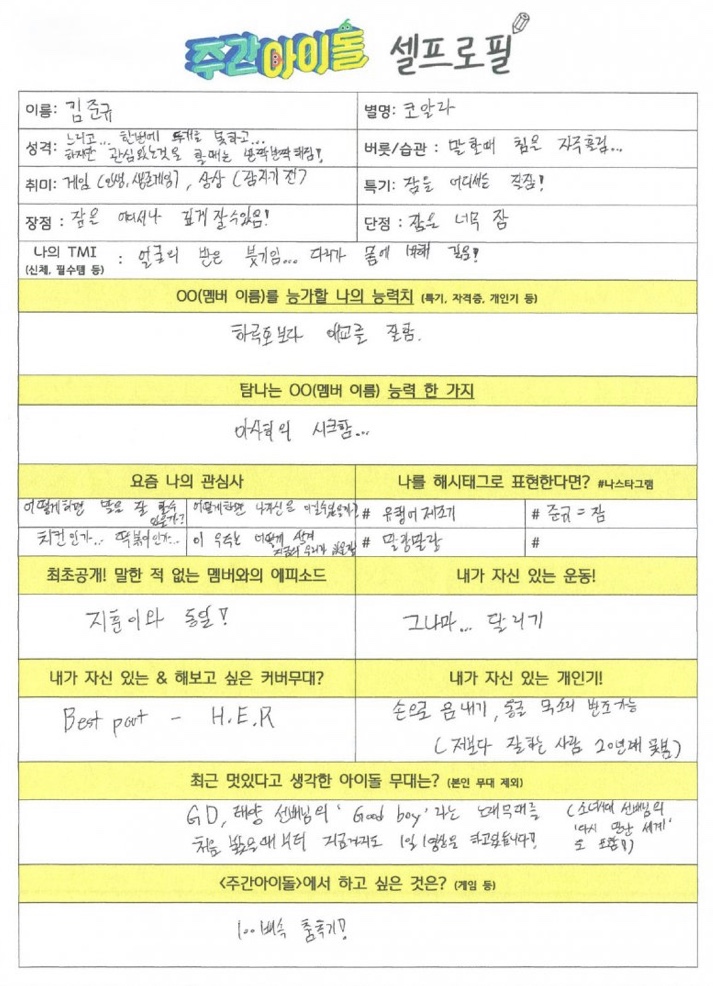 주간아이돌 셀프로필
이름: 김준규
별명: 코알라
성격: 느리고... 한번에 두개를 못하고...
하지만 관심있는것을 할때는 반짝반짝해짐!
버릇/습관 : 말할때 침을 자주흘림...
취미: 게임 (인생, 생존게임), 상상 (잠자기 전)
특기: 잠을 어디서든 잘잠!
장점 : 잠은 어디서나 깊게 잘수있음!
단점 : 잠을 너무 잠
나의 TMI
(신체, 필수템 등)
: 얼굴의 반은 붓기임... 다리가 몸에 비해 김!
OO(멤버 이름)를 능가할 나의 능력치 (특기, 자격증, 개인기 등)
하루토보다 애교를 잘함.
탐나는 OO(멤버 이름) 능력 한 가지
아사히의 시크함...
요즘 나의 관심사
나를 해시태그로 표현한다면? #나스타그램
어떻게하면 밥을 잘 할수
있을까?
어떻게하면 나자신을 이길수있을까?
# 유행어 제조기
# 준규 = 잠
치킨인가... 떡볶이인가...
이 우주는 어떻게 생겨
# 말랑말랑
#
최초공개! 말한 적 없는 멤버와의 에피소드
내가 자신 있는 운동!
지훈이와 동일!
그나마... 달리기
내가 자신 있는 & 해보고 싶은 커버무대?
내가 자신 있는 개인기!
Best part - H.E.R
손으로 음내기, 동굴 목소리 반조가능
(저보다 잘하는 사람 20년째 못봄)
최근 멋있다고 생각한 아이돌 무대는? (본인 무대 제외)
GD, 태양 선배님의 'Good boy'라는 노래무대를
처음 봤을때부터 지금까지도 1일 1영상을 하고있습니다!
(소녀시대 선배님의
'다시 만난 세계'
도 포함!!)
<주간아이돌>에서 하고 싶은 것은? (게임 등)
100배속 춤추기!